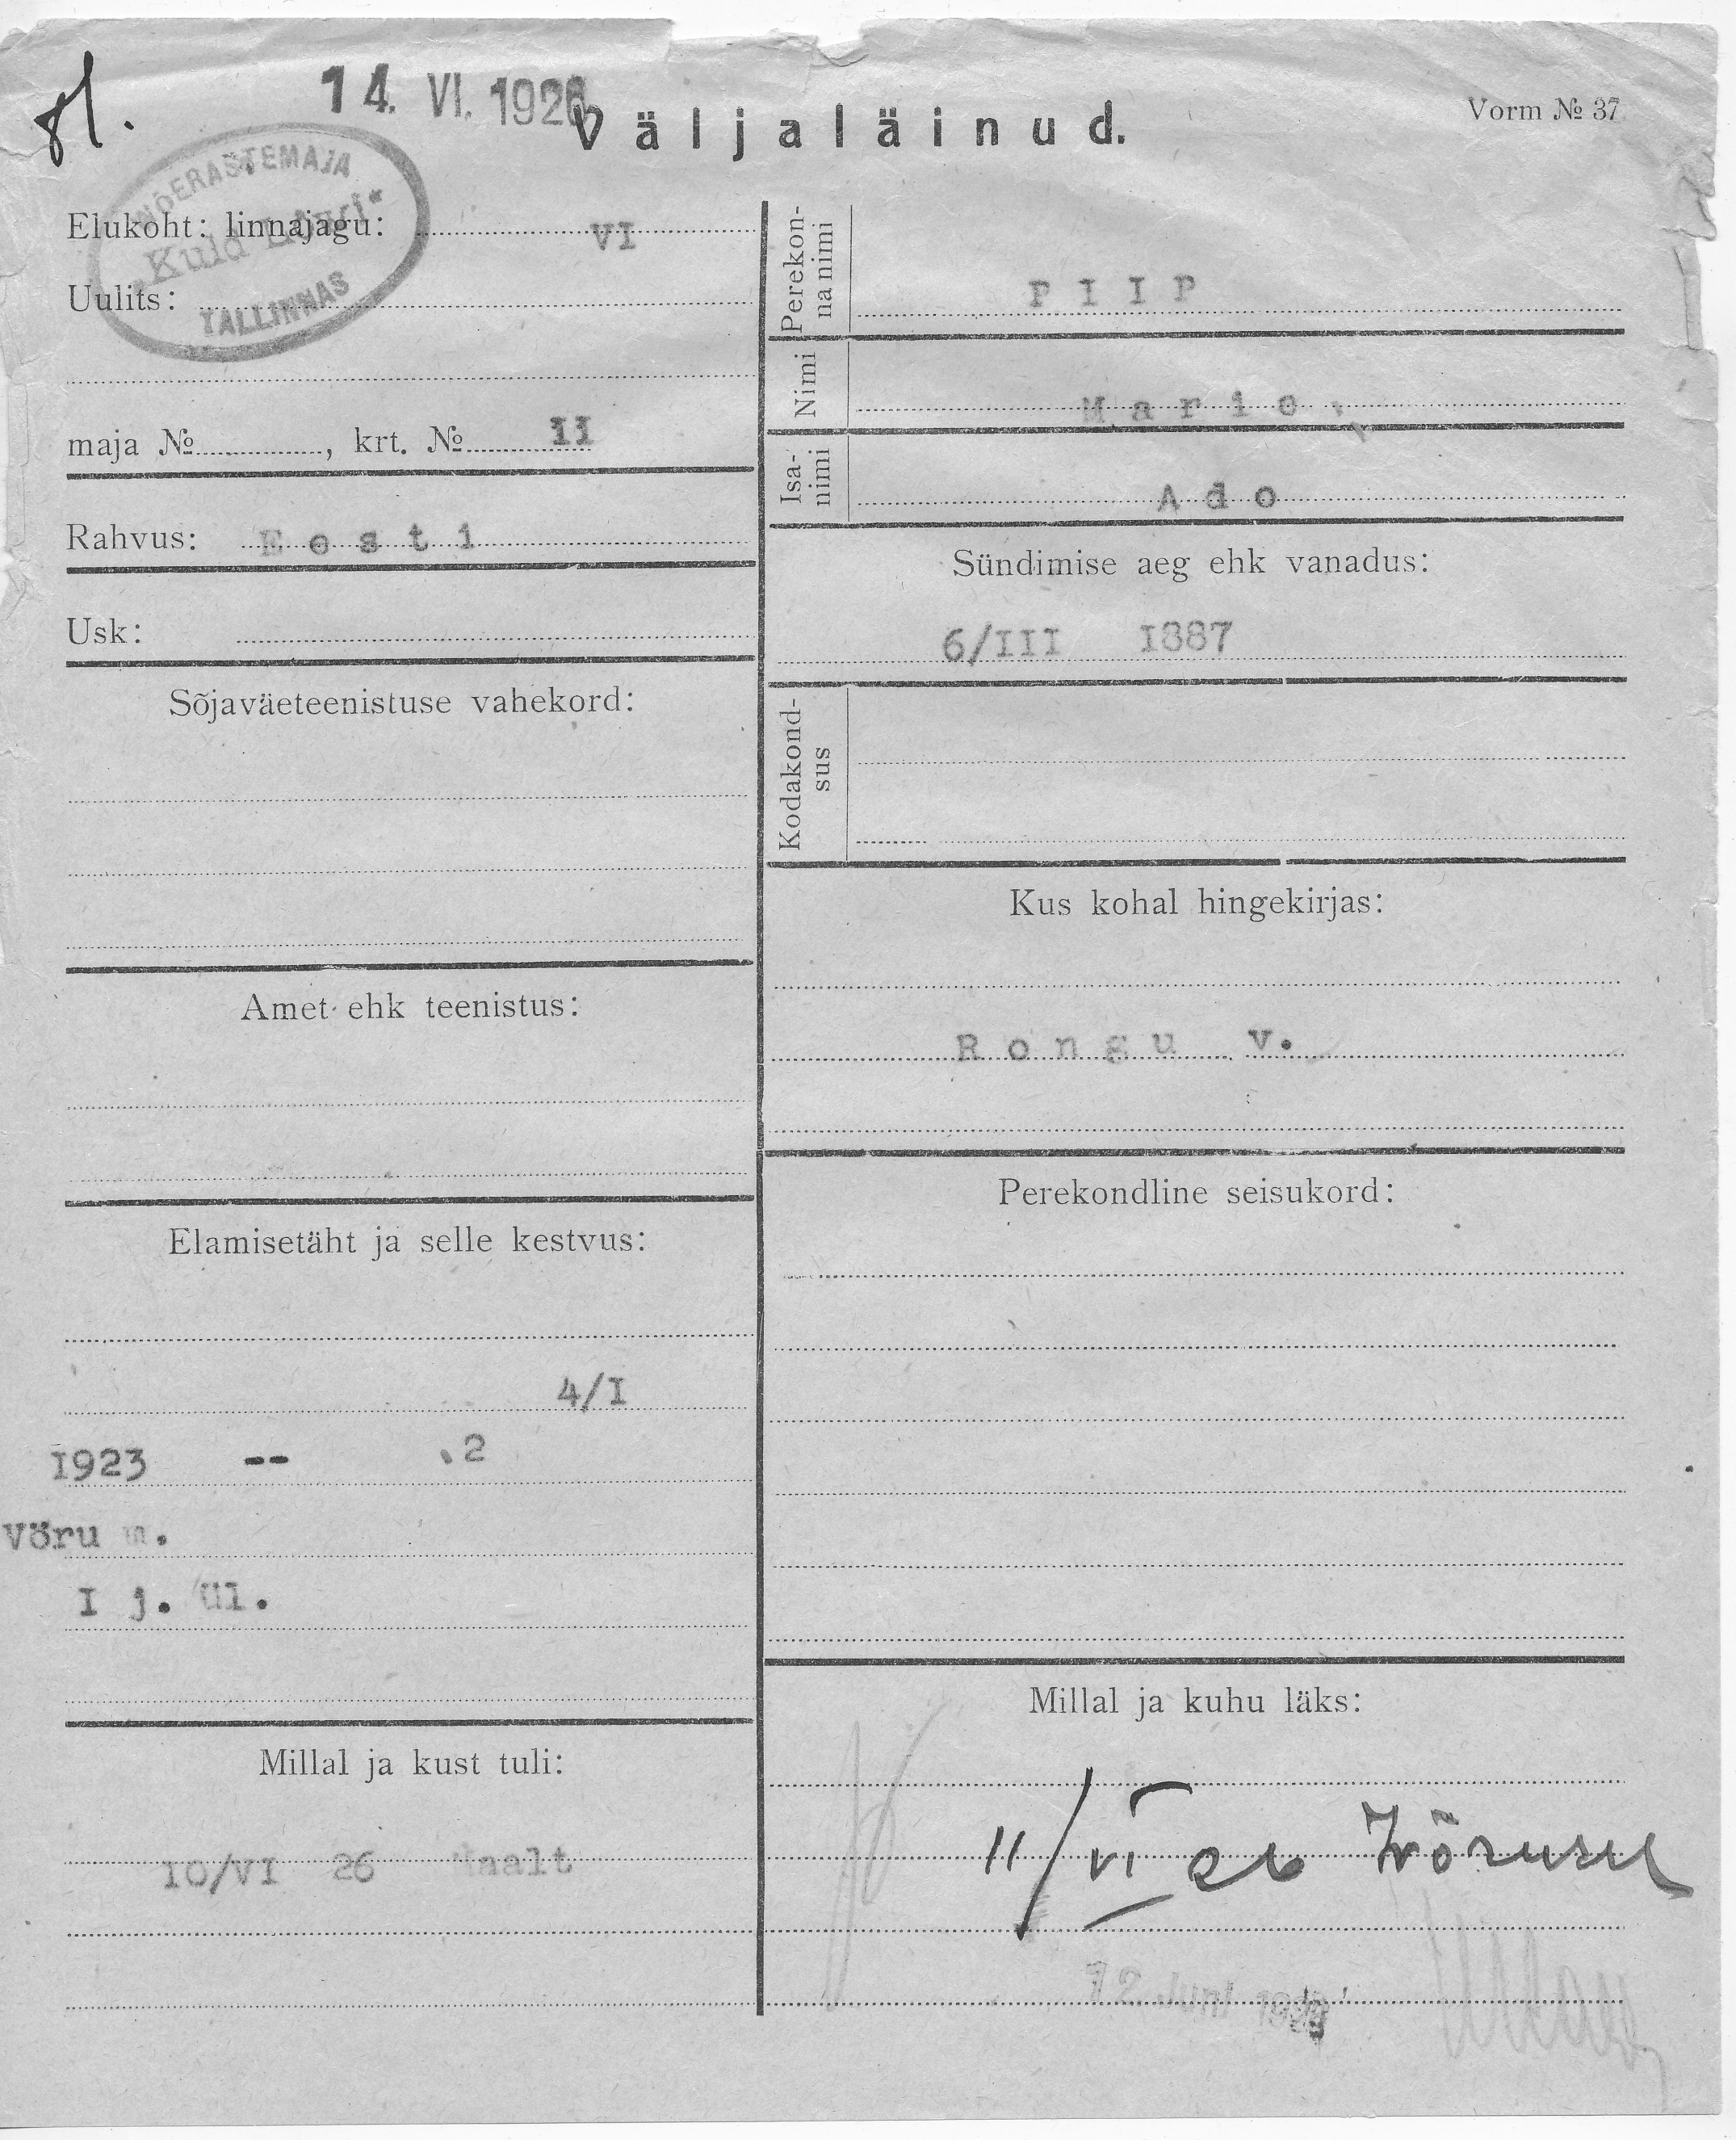 14. VI. 1926
Väljaläinud.
Vorm № 37
VÕERASTEMAJA
"Kuld Lõvi"
TALLINNAS
Elukoht: linnajagu: VI
Uulits:
maja № , krt. № 11
Rahvus: Eesti
Usk:
Sõjaväeteenistuse vahekord:
Amet ehk teenistus:
Elamisetäht ja selle kestvus:
4/I
1923 -- .2
Võru m.
I j. ül.
Millal ja kust tuli:
10/VI 26 Maalt
Perekonna nimi
PIIP
Nimi
Marie,
Isanimi
Ado
Sündimise aeg ehk vanadus:
6/III 1887
Kodakondsus
Kus kohal hingekirjas:
Rongu v.
Perekondline seisukord:
Millal ja kuhu läks:
11/VI 26 Wõrusse
12 Juni